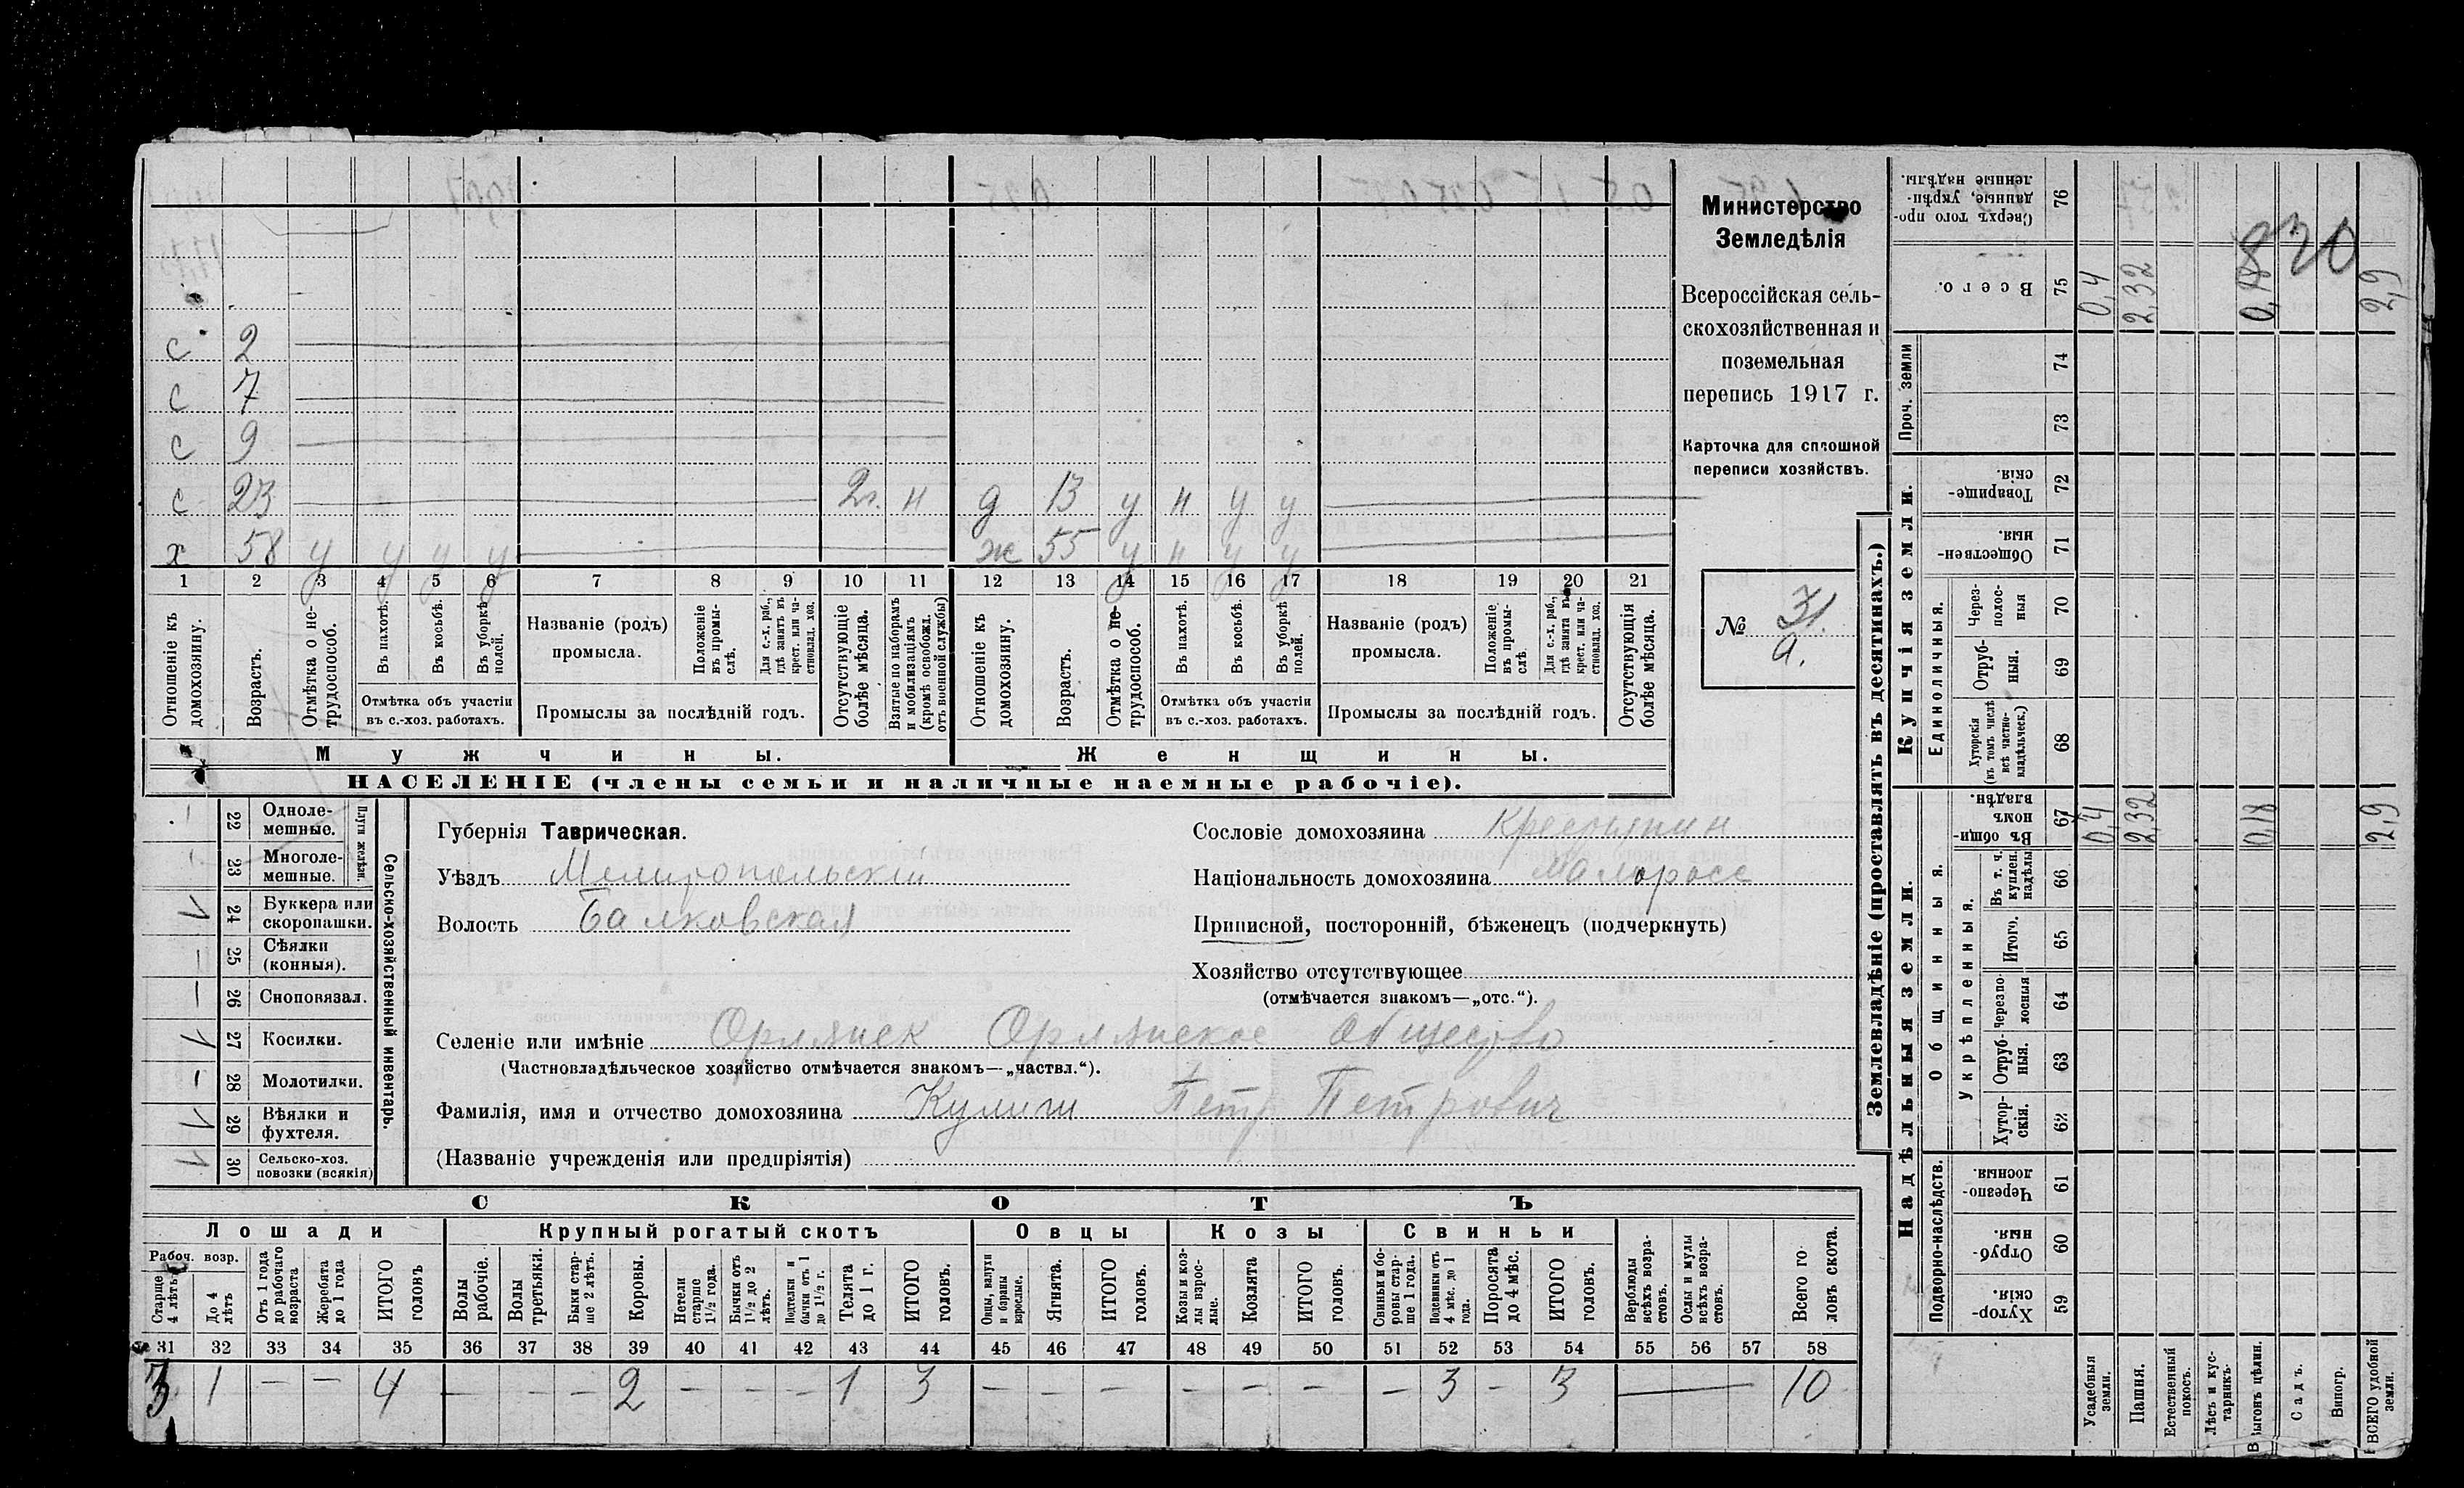 Министерство
Земледѣлія
Всероссійская сель-
скохозяйственная и
поземельная
перепись 1917 г.
Карточка для сплошной
переписи хозяйствъ.
№ 31.
а.
830
с 2
с 7
с 9
с 23 2г. н д 13 у н у у
х 58 у у у у ж 55 у н у у
1 2 3 4 5 6 7 8 9 10 11 12 13 14 15 16 17 18 19 20 21
Отношеніе къ домохозяину.
Возрастъ.
Отмѣтка о не-трудоспособ.
Въ пахотѣ.
Въ косьбѣ.
Въ уборкѣ полей.
Отмѣтка объ участіи
въ с.-хоз. работахъ.
Названіе (родъ)
промысла.
Положеніе въ промы-слѣ.
Для с.-х. раб., гдѣ занятъ въ крест. или ча-стновлад. хоз.
Промыслы за послѣдній годъ.
Отсутствующіе болѣе мѣсяца.
Взятые по наборамъ и мобилизаціямъ (кромѣ освобожд. отъ военной службы)
Отношеніе къ домохозяину.
Возрастъ.
Отмѣтка о не-трудоспособ.
Въ пахотѣ.
Въ косьбѣ.
Въ уборкѣ полей.
Отмѣтка объ участіи
въ с.-хоз. работахъ.
Названіе (родъ)
промысла.
Положеніе въ промы-слѣ
Для с.-х. раб., гдѣ занята въ крест. или ча-стновлад. хоз.
Промыслы за послѣдній годъ.
Отсутствующія болѣе мѣсяца.
Мужчины. Женщины.
НАСЕЛЕНІЕ (члены семьи и наличные наемные рабочіе).
Сельско-хозяйственный инвентарь.
Плуги желѣзн.
– 22 Одноле-мешные.
– 23 Многоле-мешные.
1 24 Буккера или скоропашки.
– 25 Сѣялки (конныя).
– 26 Сноповязал.
1 27 Косилки.
– 28 Молотилки.
1 29 Вѣялки и фухтеля.
1 30 Сельско-хоз. повозки (всякія)
Губернія Таврическая.
Уѣздъ Мелитопольскій
Волость Балковская
Сословіе домохозяина Крестьянин
Національность домохозяина Малоросс
Приписной, посторонній, бѣженецъ (подчеркнуть)
Хозяйство отсутствующее
(отмѣчается знакомъ—„отс.“).
Селеніе или имѣніе Орлянск Орлянское общество
(Частновладѣльческое хозяйство отмѣчается знакомъ—„частвл.“).
Фамилія, имя и отчество домохозяина Кулиш Петр Петрович
(Названіе учрежденія или предпріятія)
СКОТЪ
Лошади Крупный рогатый скотъ Овцы Козы Свиньи
Рабоч. возр.
Старше 4 лѣтъ
До 4 лѣтъ
Отъ 1 года до рабочаго возраста
Жеребята до 1 года
ИТОГО головъ
Волы рабочіе.
Волы третьяки.
Быки стар-ше 2 лѣтъ.
Коровы.
Нетели старше 1½ года.
Бычки отъ 1½ до 2 лѣтъ.
Подтелки и бычки отъ 1 до 1½ г.
Телята до 1 г.
ИТОГО головъ.
Овцы, валухи и бараны взрослые.
Ягнята.
ИТОГО головъ.
Козы и коз-лы взрос-лые.
Козлята
ИТОГО головъ.
Свиньи и бо-ровы стар-ше 1 года.
Подсвинки отъ 4 мѣс. до 1 года.
Поросята до 4 мѣс.
ИТОГО головъ.
Верблюды всѣхъ возра-стовъ.
Ослы и мулы всѣхъ возра-стовъ.
Всего го ловъ скота.
31 32 33 34 35 36 37 38 39 40 41 42 43 44 45 46 47 48 49 50 51 52 53 54 55 56 57 58
3 1 – – 4 – – – 2 – – – 1 3 – – – – – – – 3 – 3 — 10
Землевладѣніе (проставлять въ десятинахъ.)
Надѣльныя земли.
Купчія земли.
Проч. земли
Подворно-наслѣдств.
Общинныя.
Укрѣпленныя.
Единоличныя.
Сверхъ того про-данные, укрѣп-ленные надѣлы. 76
Всего. 75 0,4 2,32 0,18 2,9
74
73
Товарище-скія. 72
Обществен-ныя. 71
Через-полос-ныя 70
Отруб-ныя. 69
Хуторскія (въ томъ числѣ всѣ частно-владѣльческ.) 68
Въ общин-номъ владѣн. 67 0,4 2,32 0,18 2,9
Въ т. ч. куплен. надѣлы 66
Итого. 65
Черезпо-лосныя 64
Отруб-ныя. 63
Хутор-скія. 62
Черезпо-лосныя 61
Отруб-ныя. 60
Хутор-скія. 59
Усадебныя земли.
Пашня.
Естественный покосъ.
Лѣсъ и кус-тарникъ.
Выгонъ цѣлин.
Садъ.
Виногр.
ВСЕГО удобной земли.